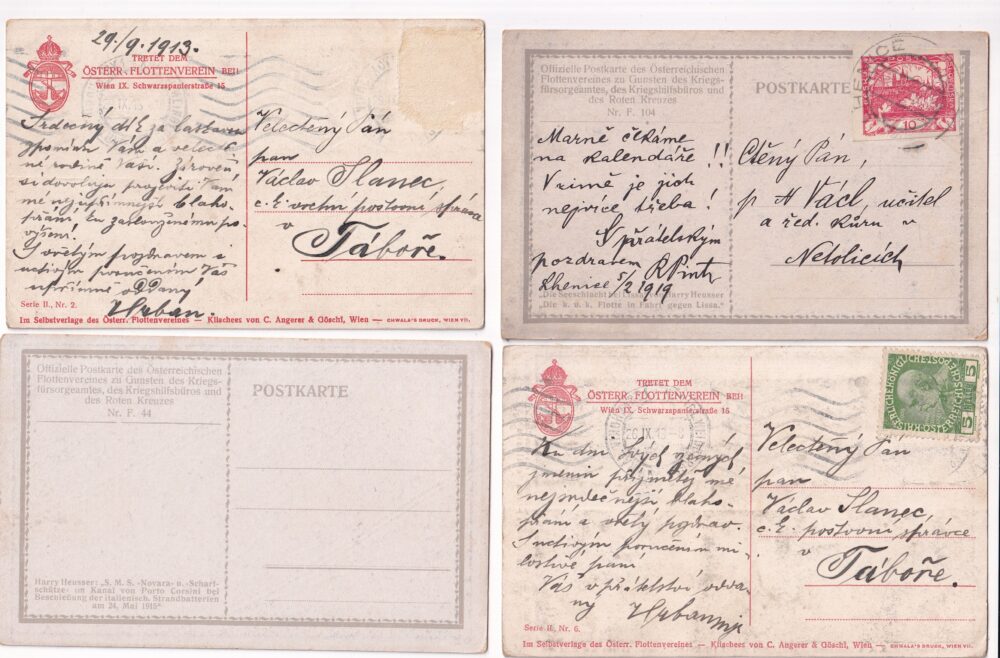 29./9.1913.
TRETET DEM
ÖSTERR. FLOTTENVEREIN BEI!
Wien IX. Schwarzspanierstraße 15
Srdečný dík za laskavou
vzpomínku Vám a velect.
né rodině Vaší. Zároveň
si dovoluji projeviti Vám
mé nejupřímnější blaho-
přání ku zaslouženému po-
výšení.
S vřelým pozdravem a
uctivým poručením Váš
upřímně oddaný
Urban.
Serie II., Nr. 2.
Velectěný Pán
pan
Václav Slanec,
c. k. vrchní poštovní správce
v
Táboře.
Im Selbstverlage des Österr. Flottenvereines — Klischees von C. Angerer & Göschl, Wien — CHWALA'S DRUCK, WIEN VII.
Offizielle Postkarte des Österreichischen
Flottenvereines zu Gunsten des Kriegs-
fürsorgeamtes, des Kriegshilfsbüros und
des Roten Kreuzes
Nr. F. 104
POSTKARTE
10
Marně čekáme
na kalendáře!!
V zimě je jich
nejvíce třeba!
S přátelským
pozdravem
5/2 1919
Die Seeschlacht bei Lissa von Harry Heusser
„Die k. u. k. Flotte in Fahrt gegen Lissa."
Ctěný Pan,
p. A Václ, učitel
a řed. kůru v
Netolicích
Offizielle Postkarte des Österreichischen
Flottenvereines zu Gunsten des Kriegs-
fürsorgeamtes, des Kriegshilfsbüros und
des Roten Kreuzes
Nr. F. 44
POSTKARTE
Harry Heusser: „S. M. S. -Novara- u. -Scharf-
schütze- im Kanal von Porto Corsini bei
Beschießung der italienisch. Strandbatterien
am 24. Mai 1915"
TRETET DEM
ÖSTERR. FLOTTENVEREIN BEI!
Wien IX. Schwarzspanierstraße 15
Ku dni Svých
jmenin přijmětež mé
nejsrdečnější blaho-
přání a vřelý pozdrav.
S uctivým poručením mi-
lostivé paní
Váš v přátelství odda-
ný Urban
Serie II., Nr. 6.
5
5
Velectěný Pán
pan
Václav Slanec,
c. k. poštovní správce
v
Táboře.
Im Selbstverlage des Österr. Flottenvereines — Klischees von C. Angerer & Göschl, Wien — CHWALA'S DRUCK, WIEN VII.